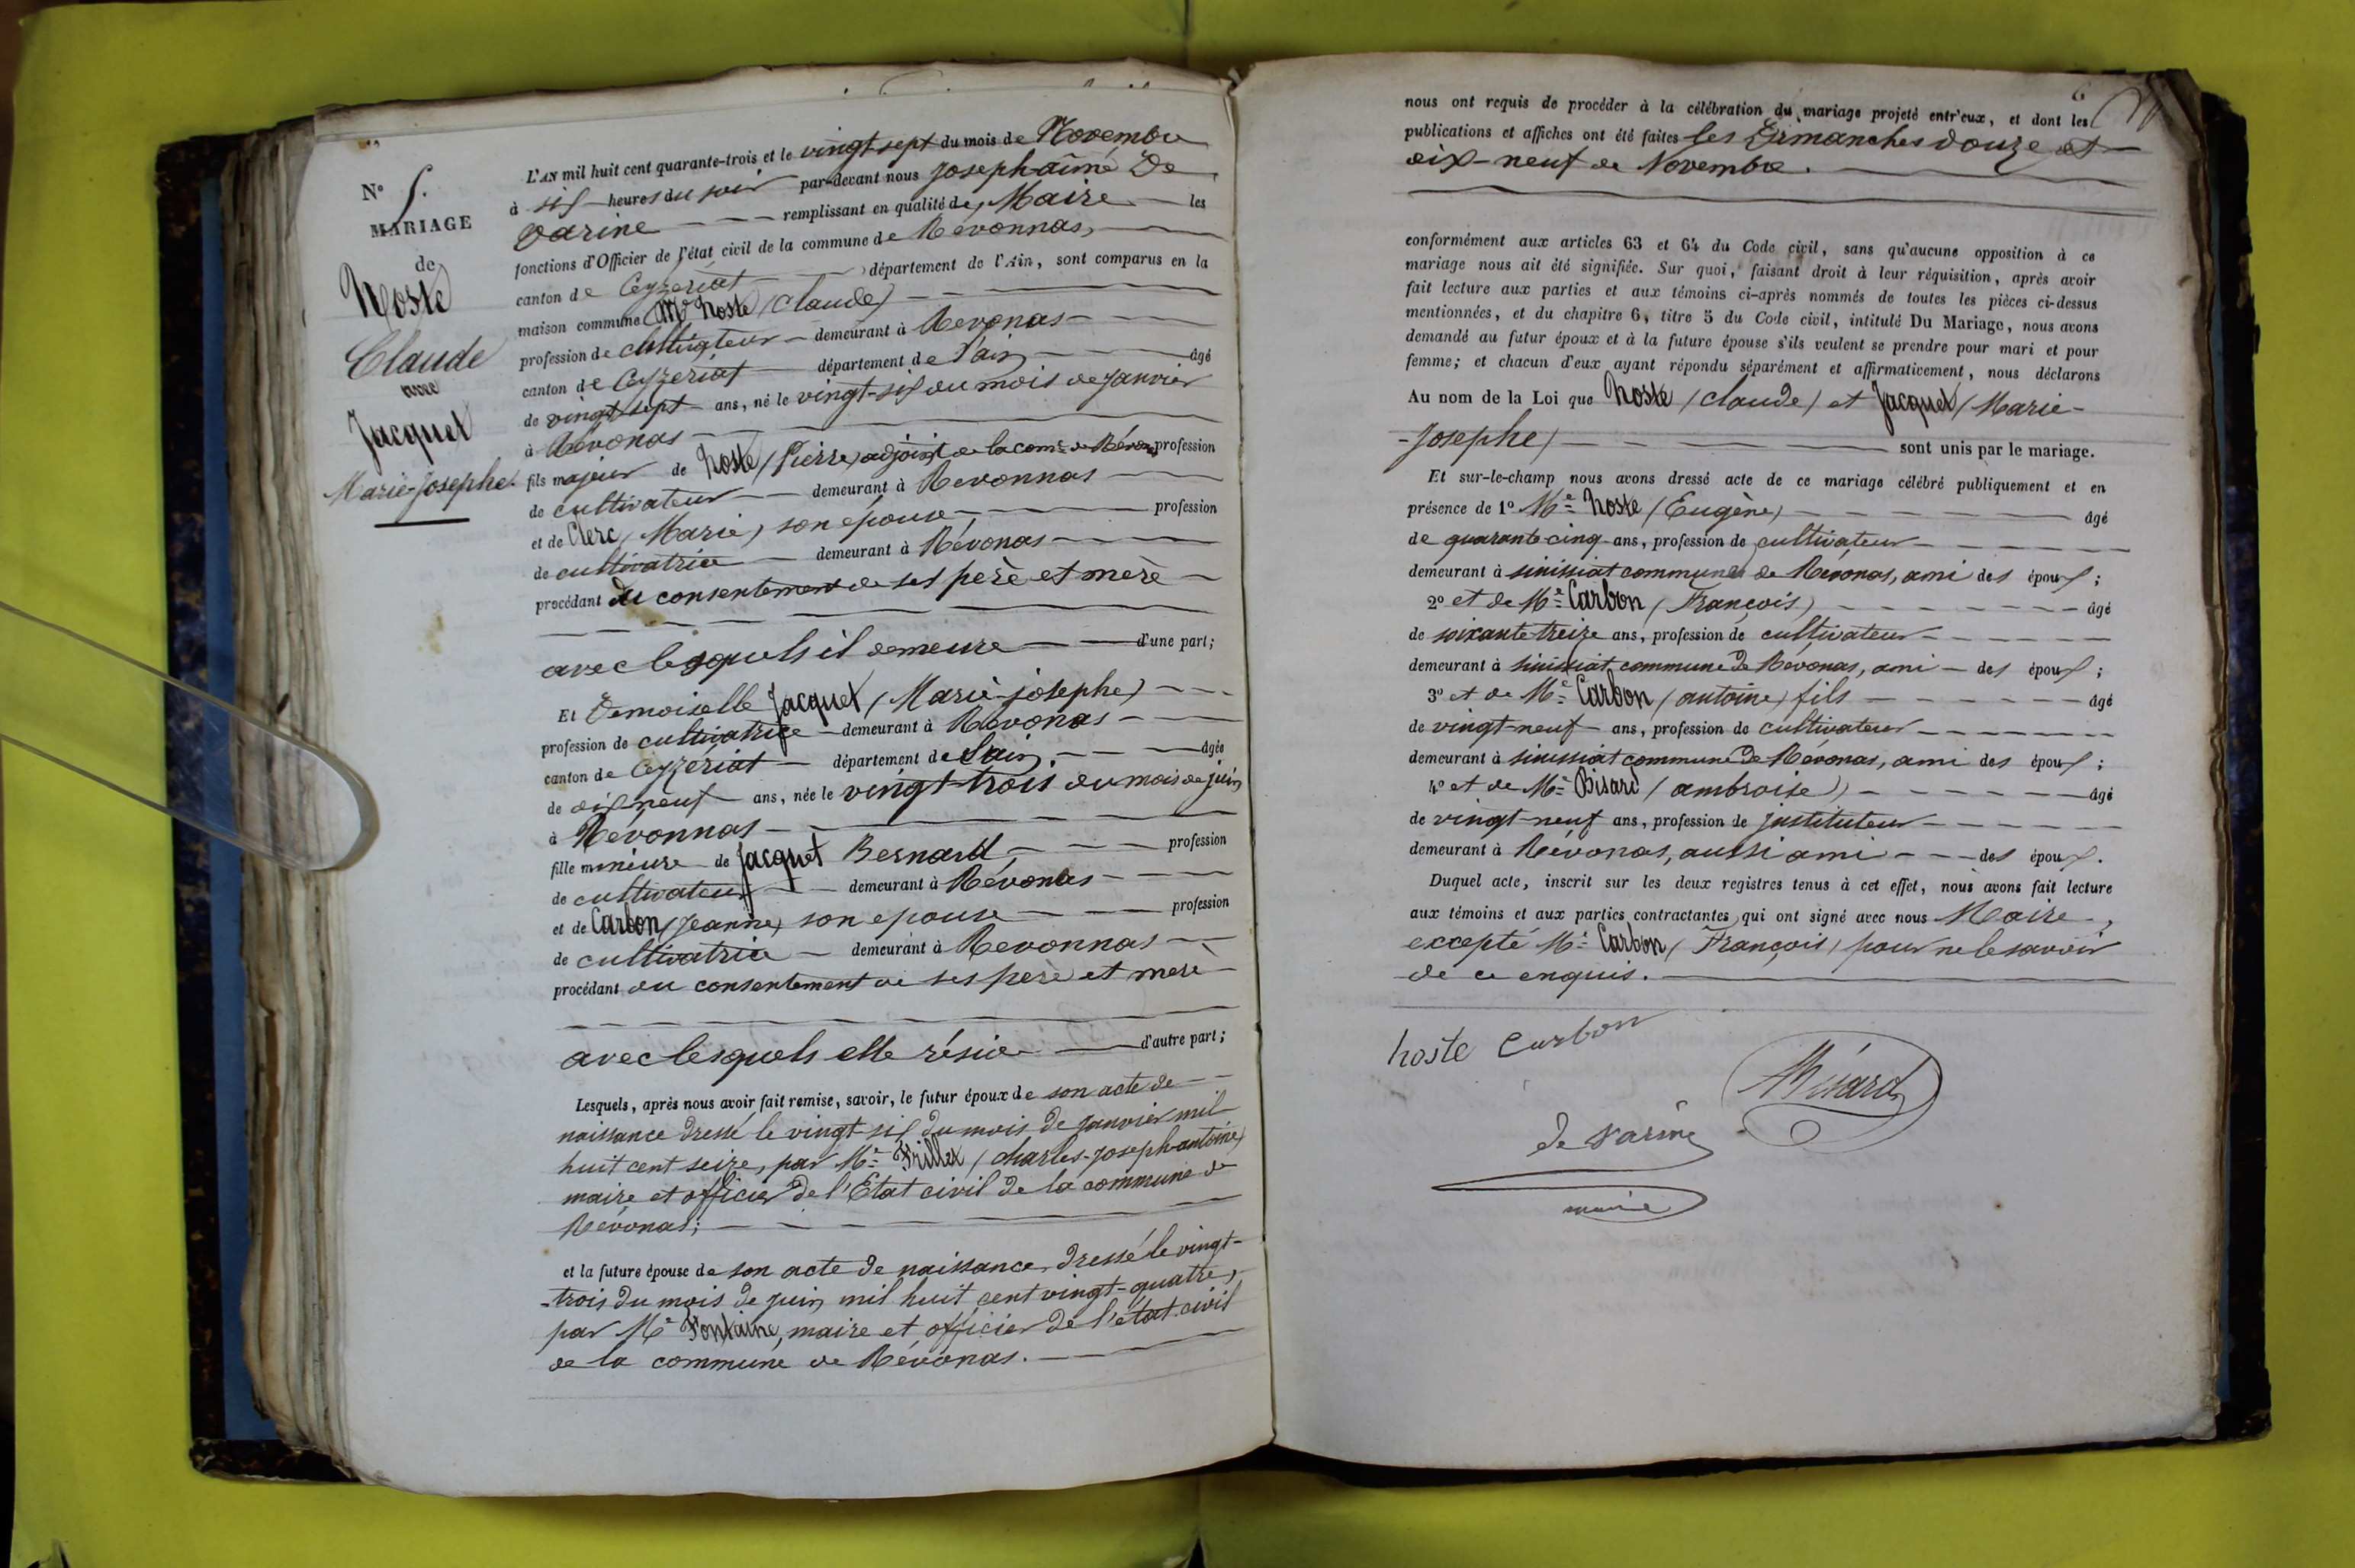 N° 5.
MARIAGE
de
Hoste
Claude
avec
Jacquet
Marie-Josephe.
L'AN mil huit cent quarante-trois et le vingt-sept du mois de Novembre
à six heures du soir par-devant nous Joseph-aimé De
Varine remplissant en qualité de Maire les
fonctions d'Officier de l'état civil de la commune de Révonnas,
canton de Ceyzériat département de l'Ain, sont comparus en la
maison commune Mr Hoste (Claude)
profession de cultivateur demeurant à Revonas
canton de Ceyzeriat département de l'ain âgé
de vingt-sept ans, né le vingt-six du mois de Janvier
à Révonas
fils majeur de Hoste (Pierre) adjoint de la come de Révonas profession
de cultivateur demeurant à Revonnas
et de Clerc (Marie) son epouse, profession
de cultivatrice demeurant à Révonas
procédant du consentement de ses perè et merè
avec lesquels il demeure d'une part;
Et Demoiselle Jacquet (Marie-josephe)
profession de cultivatrice demeurant à Révonas
canton de Ceyzériat département de l'ain, âgée
de dix neuf ans, née le vingt-trois du mois de juin
à Révonnas
fille mineure de Jacquet Bernard, profession
de cultivateur demeurant à Révonas
et de Carbon (Jeanne) son epouse profession
de cultivatrice demeurant à Revonnas
procédant du consentement de ses perè et merè
avec lesquels elle réside d'autre part;
Lesquels, après nous avoir fait remise, savoir, le futur époux de son acte de
naissance dressé le vingt-six du mois de Janvier mil
huit cent seize, par Mr Frillet (charles-joseph-antoine)
maire et officier de l'Etat civil de la commune de
Révonas;
et la future épouse de son acte de naissance, dressé le vingt-
-trois du mois de juin mil huit cent vingt-quatre,
par Mr Fontaine, maire et officier de l'état civil
de la commune de Révonas.
6
nous ont requis de procéder à la célébration du mariage projeté entr'eux, et dont les
publications et affiches ont été faites les Dimanches douze et
dix-neuf de Novembre.
conformément aux articles 63 et 64 du Code civil, sans qu'aucune opposition à ce
mariage nous ait été signifiée. Sur quoi, faisant droit à leur réquisition, après avoir
fait lecture aux parties et aux témoins ci-après nommés de toutes les pièces ci-dessus
mentionnées, et du chapitre 6, titre 5 du Code civil, intitulé Du Mariage, nous avons
demandé au futur époux et à la future épouse s'ils veulent se prendre pour mari et pour
femme; et chacun d'eux ayant répondu séparément et affirmativement, nous déclarons
Au nom de la Loi que Hoste (Claude) et Jacquet (Marie-
-Josephe) sont unis par le mariage.
Et sur-le-champ nous avons dressé acte de ce mariage célébré publiquement et en
présence de 1° Mr Hoste (Eugène) âgé
de quarante-cinq ans, profession de cultivateur
demeurant à sinissiat commune de Revonas, ami des époux;
2° et de Mr Carbon (François) âgé
de soixante treize ans, profession de cultivateur
demeurant à sinissiat commune de Révonas, ami des époux;
3° et de Mr Carbon (antoine) fils âgé
de vingt-neuf ans, profession de cultivateur
demeurant à sinissiat commune de Révonas, ami des époux;
4° et de Mr Bisard (ambroise) âgé
de vingt-neuf ans, profession de Instituteur
demeurant à Révonas, aussi ami des époux.
Duquel acte, inscrit sur les deux registres tenus à cet effet, nous avons fait lecture
aux témoins et aux parties contractantes, qui ont signé avec nous Maire,
excepté Mr Carbon (François) pour ne le savoir
de ce enquis.
hoste Carbon
Bisard
de Varine
maire